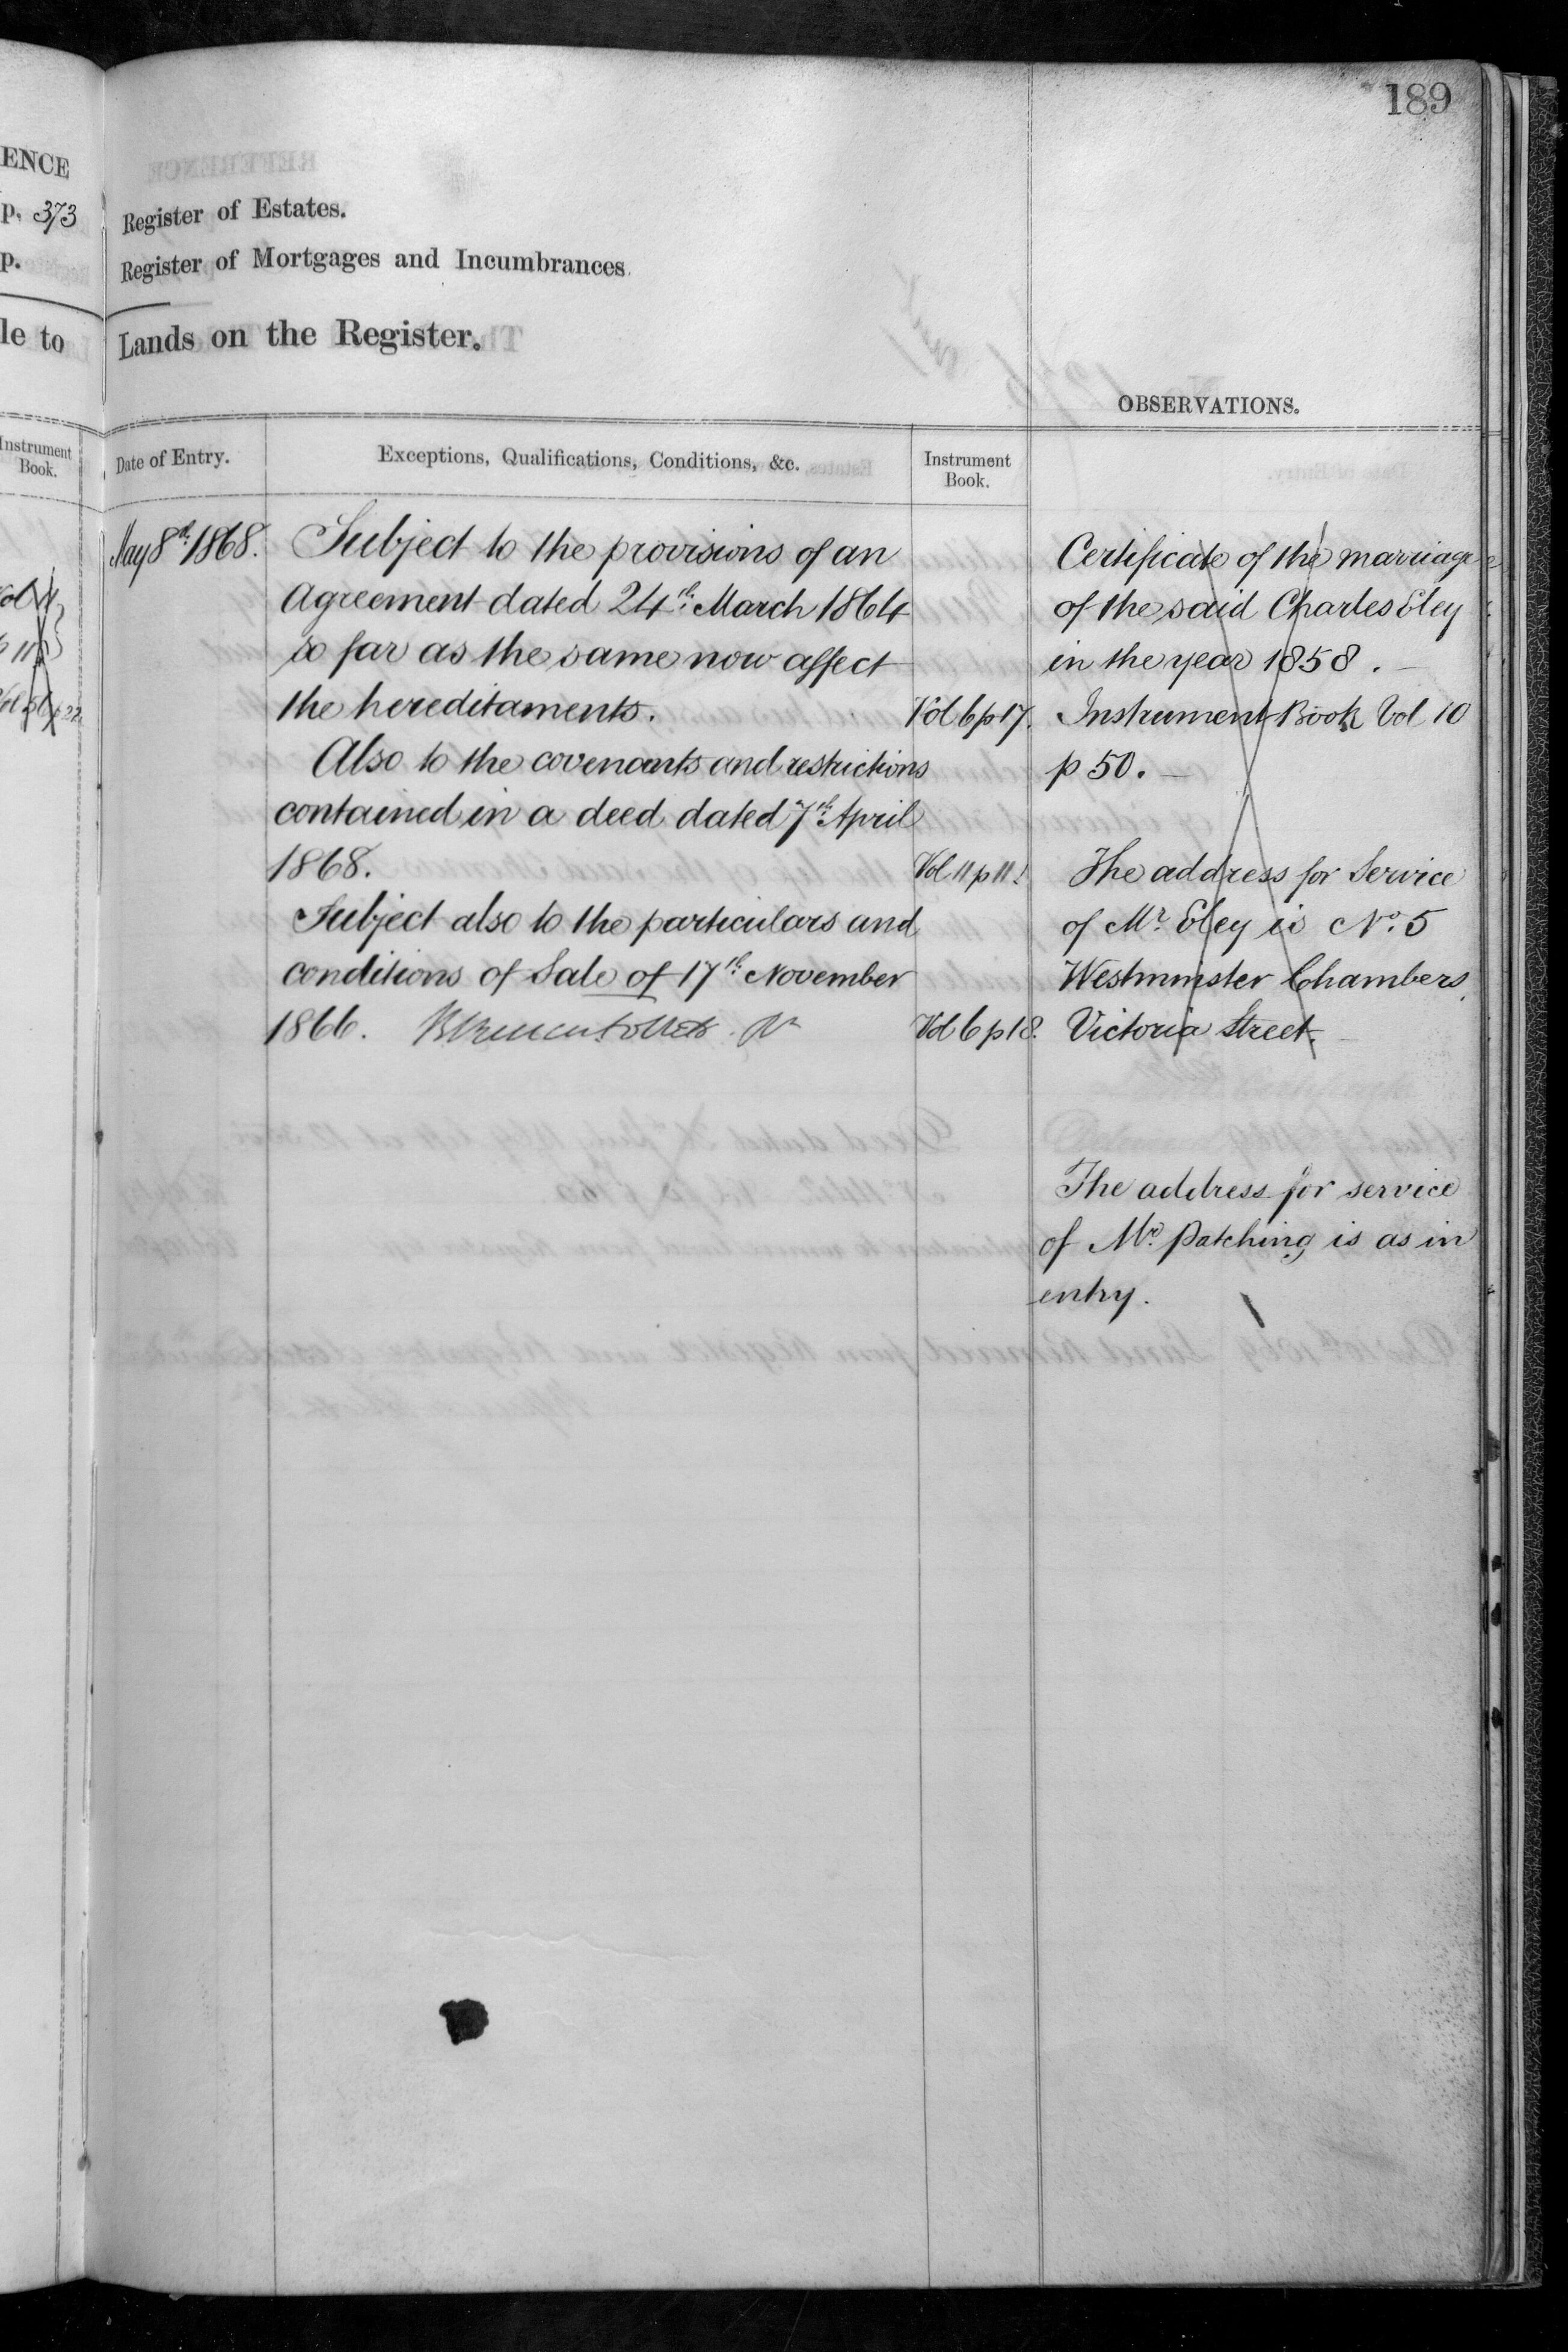 189
ENCE
p. 373
p.
le to
Instrument
Book.
Register of Estates.
Register of Mortgages and Incumbrances.
Lands on the Register.
OBSERVATIONS.
Date of Entry.
Exceptions, Qualifications, Conditions, &c.
Instrument
Book.
May 8th 1868.
Subject to the provisions of an
Agreement dated 24th March 1864
so far as the same now affect
the hereditaments.
Vol 6 p 17.
Also to the covenants and restrictions
contained in a deed dated 7th April
1868.
Vol 11 p 11.
Subject also to the particulars and
conditions of Sale of 17th November
1866.
Vol 6 p 18.
Certificate of the marriage
of the said Charles Eley
in the year 1858.
Instrument Book Vol 10
p 50.
The address for Service
of Mr Eley is No. 5
Westminster Chambers,
Victoria Street.
The address for service
of Mr. Patching is as in
entry.